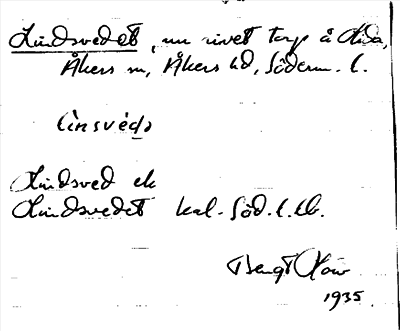 Lindsvedet, nu rivet torp å
Åkers sn, Åkers hd, Söderm. l.
lìnsvéda
Lindsved ek
Lindsvedet kal. Söd. l. tb.
Bengt
1935.